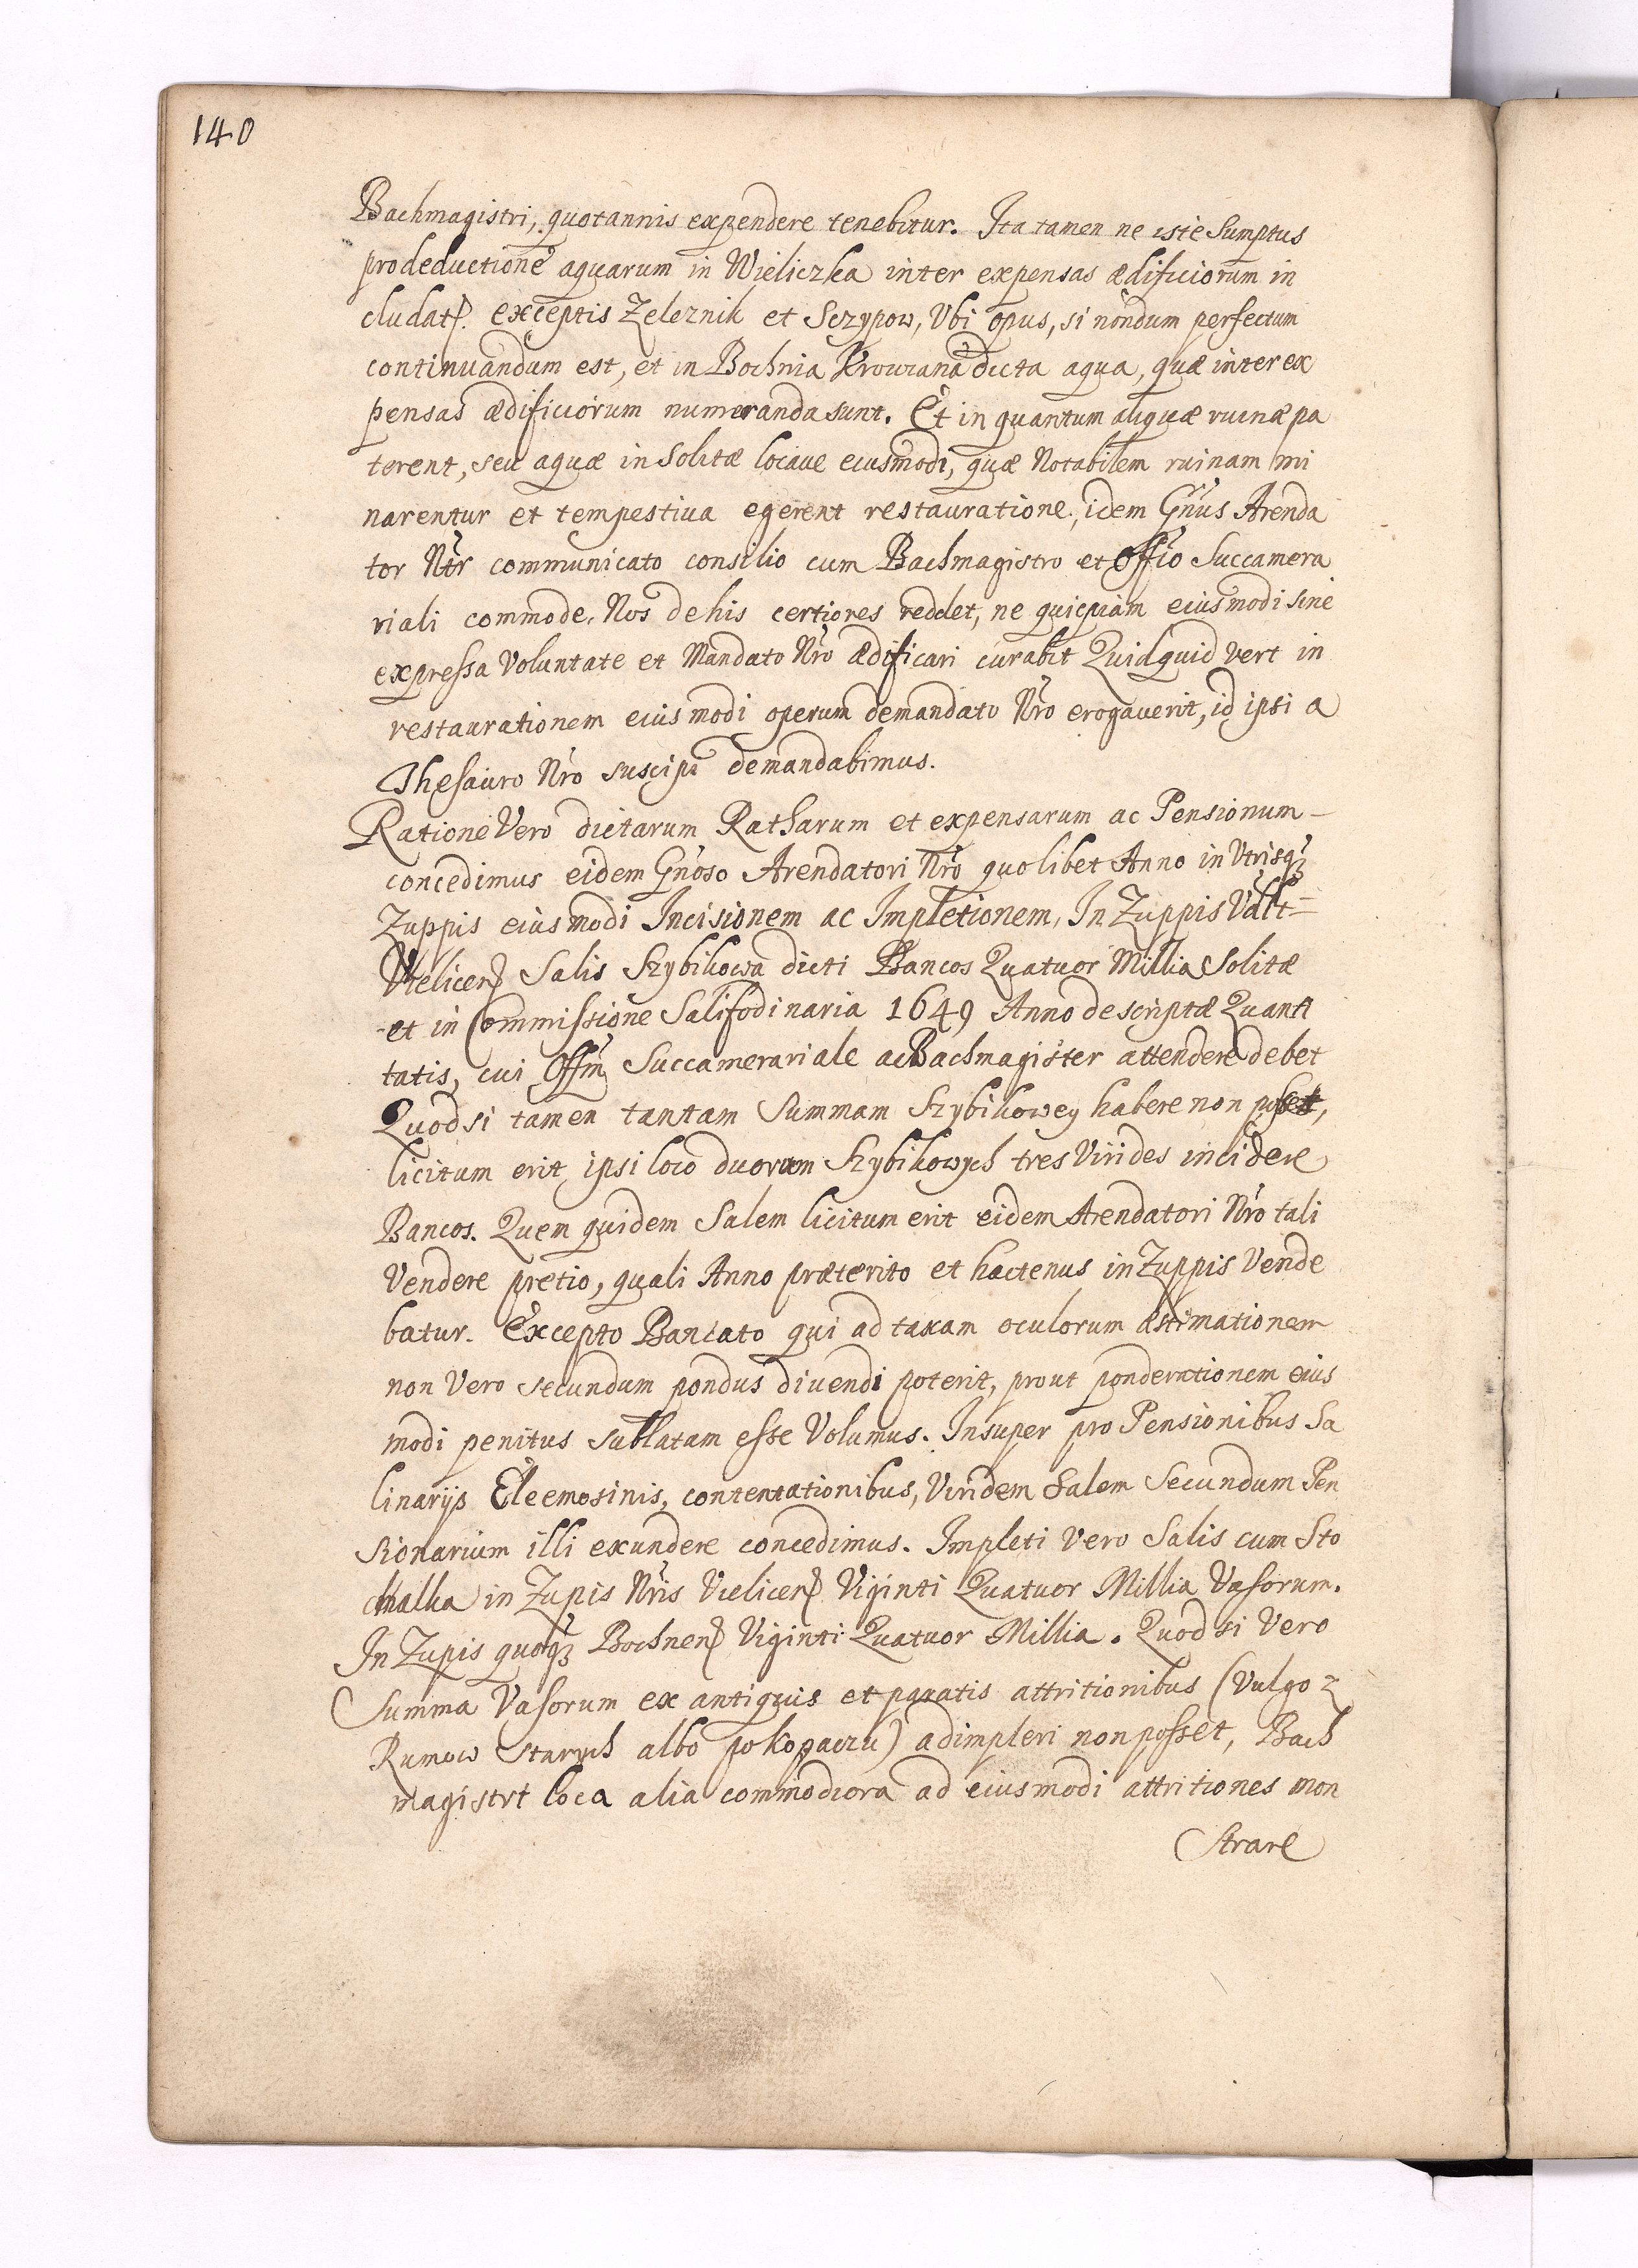 140
Bachmagistri, quotannis expendere tenebitur. Ita tamen ne iste Sumptus
pro deductione aquarum in Wieliczka inter expensas ædificiorum in
cludatr. exceptis Zeleznik et Sczypow, Vbi opus, si nondum perfectum
continuandum est, et in Bochnia Krowzana dicta aqua, quæ inter ex
pensas ædificiorum numeranda sunt. Et in quantum aliquæ ruinæ pa
terent, seu aquæ in Solitæ locaue eiusmodi, quæ Notabilem ruinam mi
narentur et tempestiua egerent restauratione, idem Gnus Arenda
tor Nr communicato consilio cum Bachmagistro et Offio Succamera
riali commode, Nos de his certiores reddet, ne quicpiam eiusmodi sine
expressa Voluntate et Mandato Nro ædificari curabit Quidquid vert in
restaurationem eiusmodi operum de mandato Nro erogauerit, id ipsi a
Thesauro Nro suscipi demandabimus.
Ratione Vero dictarum Ratharum et expensarum ac Pensionum –
concedimus eidem Gnoso Arendatori Nro quolibet Anno in Vtrisqz
Zuppis eiusmodi Incisionem ac Impletionem, In Zuppis Vdlt=
Vielicen Salis Szybikowa dicti Bancos Quatuor Millia Solitæ
et in Commissione Salifodinaria 1649 Anno descriptæ Quanti
tatis, cui Offm Succamerariale ac Bachmagister attendere debet
Quodsi tamen tantam Summam Szybikowey habere non posset,
licitum erit ipsi loco duorum Szybikowych tres Virides incidere
Bancos. Quem quidem Salem licitum erit eidem Arendatori Nro tali
Vendere pretio, quali Anno præterito et hactenus in Zuppis Vende
batur. Excepto Bancato qui ad taxam oculorum æstimationem
non Vero secundum pondus diuendi poterit, prout ponderationem eius
modi penitus sublatam esse Volumus. Insuper pro Pensionibus Sa
linarijs Eleemosinis, contentationibus, Viridem Salem Secundum Pen
sionarium illi exundere concedimus. Impleti Vero Salis cum Sto
chalka in Zupis Nris Vielicen Viginti Quatuor Millia Vasorum.
In Zupis quoqz Bochnen Viginti Quatuor Millia. Quod si Vero
Summa Vasorum ex antiquis et paratis attritionibus (Vulgo z
Rumow starych albo pokopaczu) adimpleri non posset, Bach
magistrt loca alia commodiora ad eiusmodi attritiones mon
strare